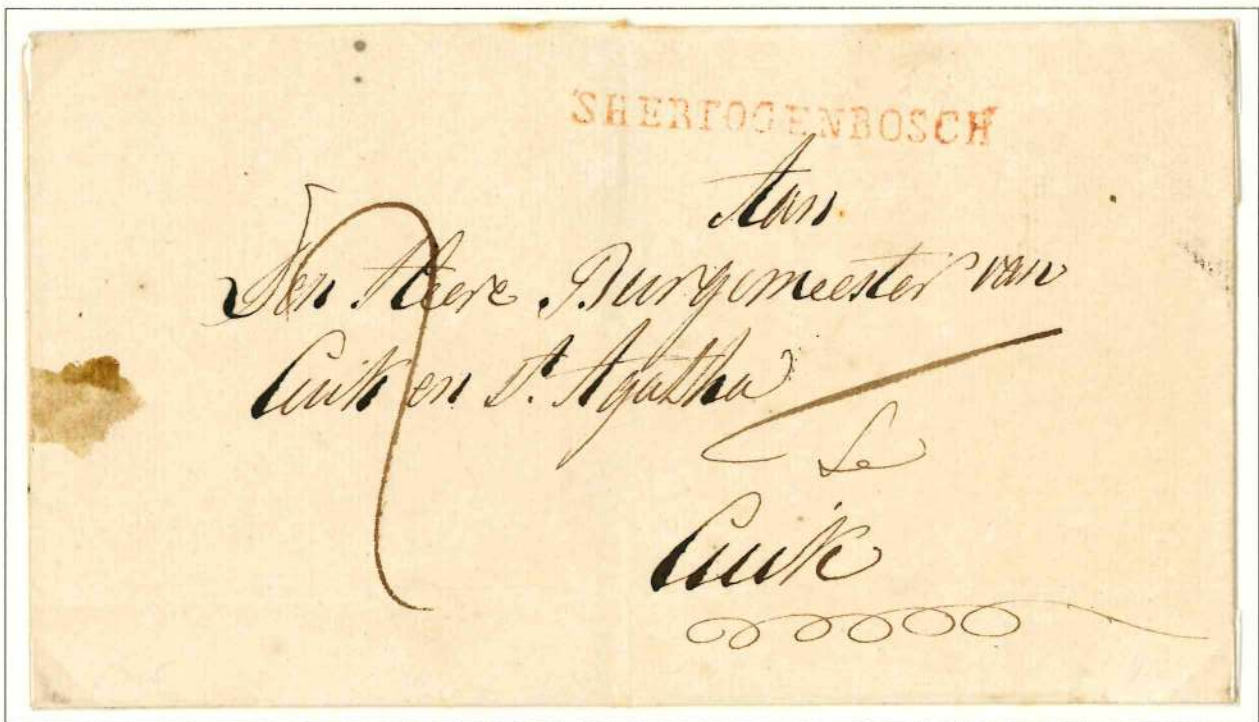 SHERTOGENBOSCH
Aan
Den Heere Burgemeester van
Cuik en St. Agatha
Te
Cuik